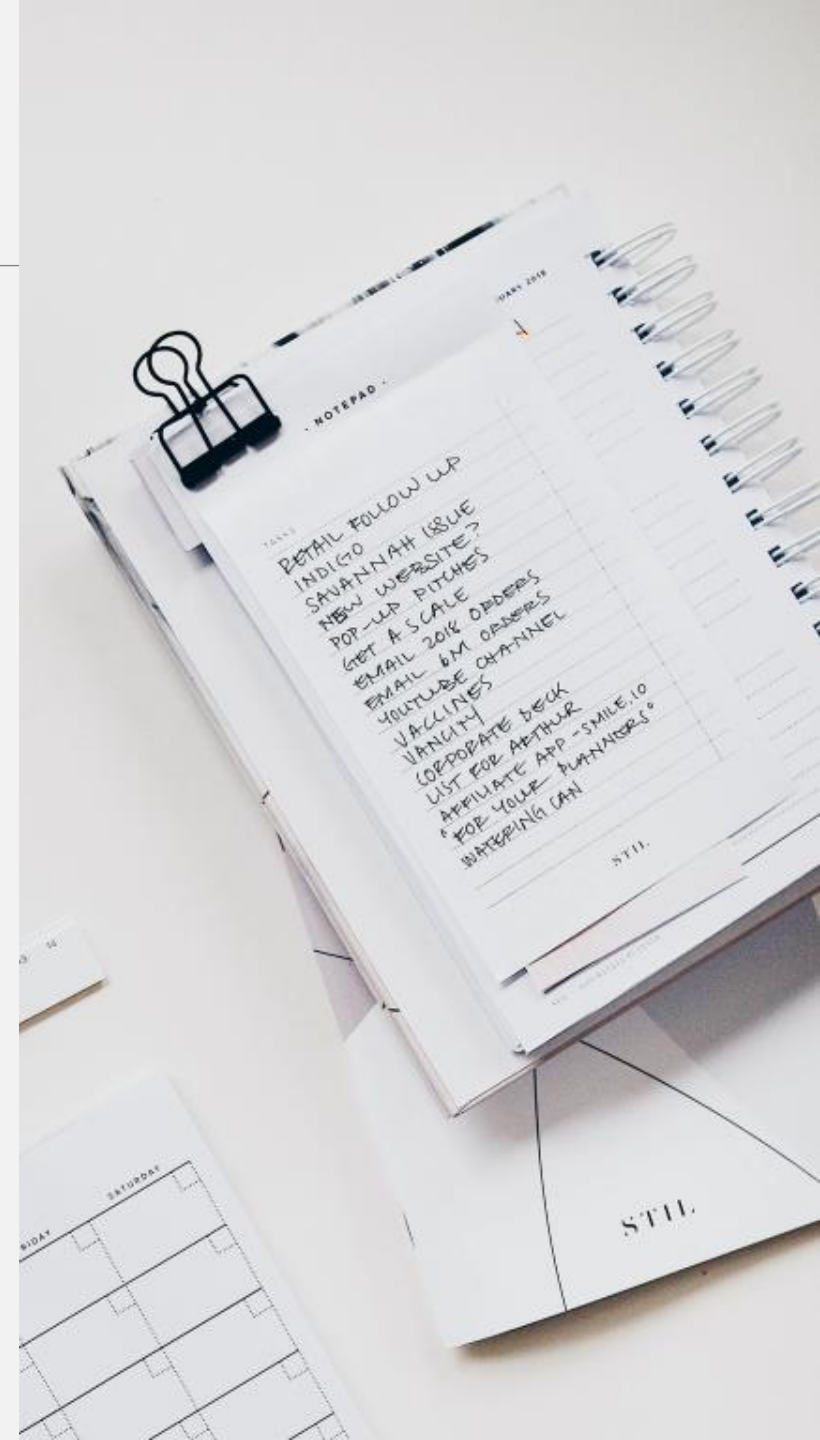 UARY 2018
· NOTEPAD ·
TASKS
RETAIL FOLLOW UP
INDIGO
SAVANNAH ISSUE
NEW WEBSITE?
POP-UP PITCHES
GET A SCALE
EMAIL 2018 ORDERS
EMAIL 6M ORDERS
YOUTUBE CHANNEL
VACCINES
VANCITY
CORPORATE DECK
LIST FOR ARTHUR
AFFILIATE APP - SMILE.IO
"FOR YOUR PLANNERS"
WATERING CAN
STIL
STIL
SATURDAY